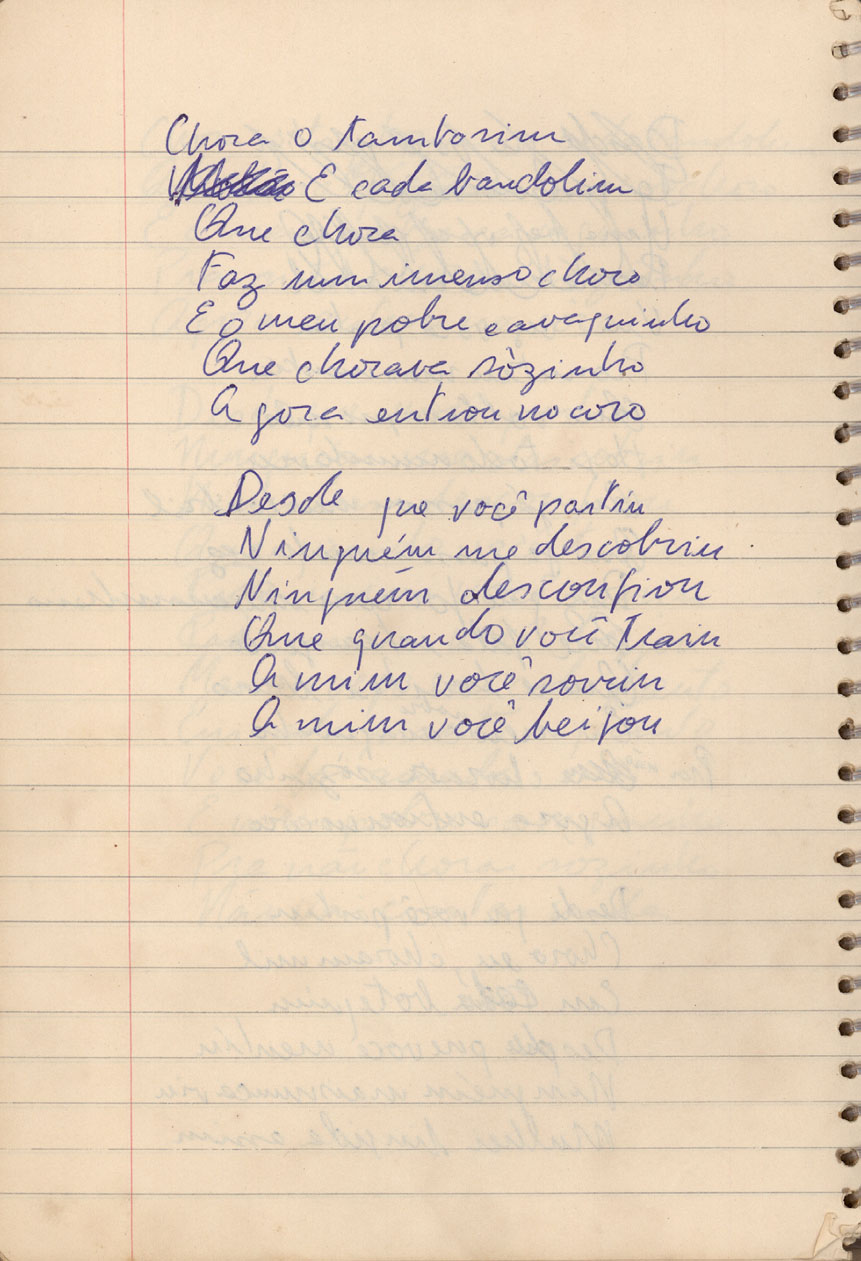 Chora o tamborim
E cada bandolim
Que chora
Faz um imenso choro
E o meu pobre cavaquinho
Que chorava sòzinho
Agora entrou no coro
Desde que você partiu
Ninguém me descobriu
Ninguém desconfiou
Que quando você traiu
A mim você sorriu
A mim você beijou